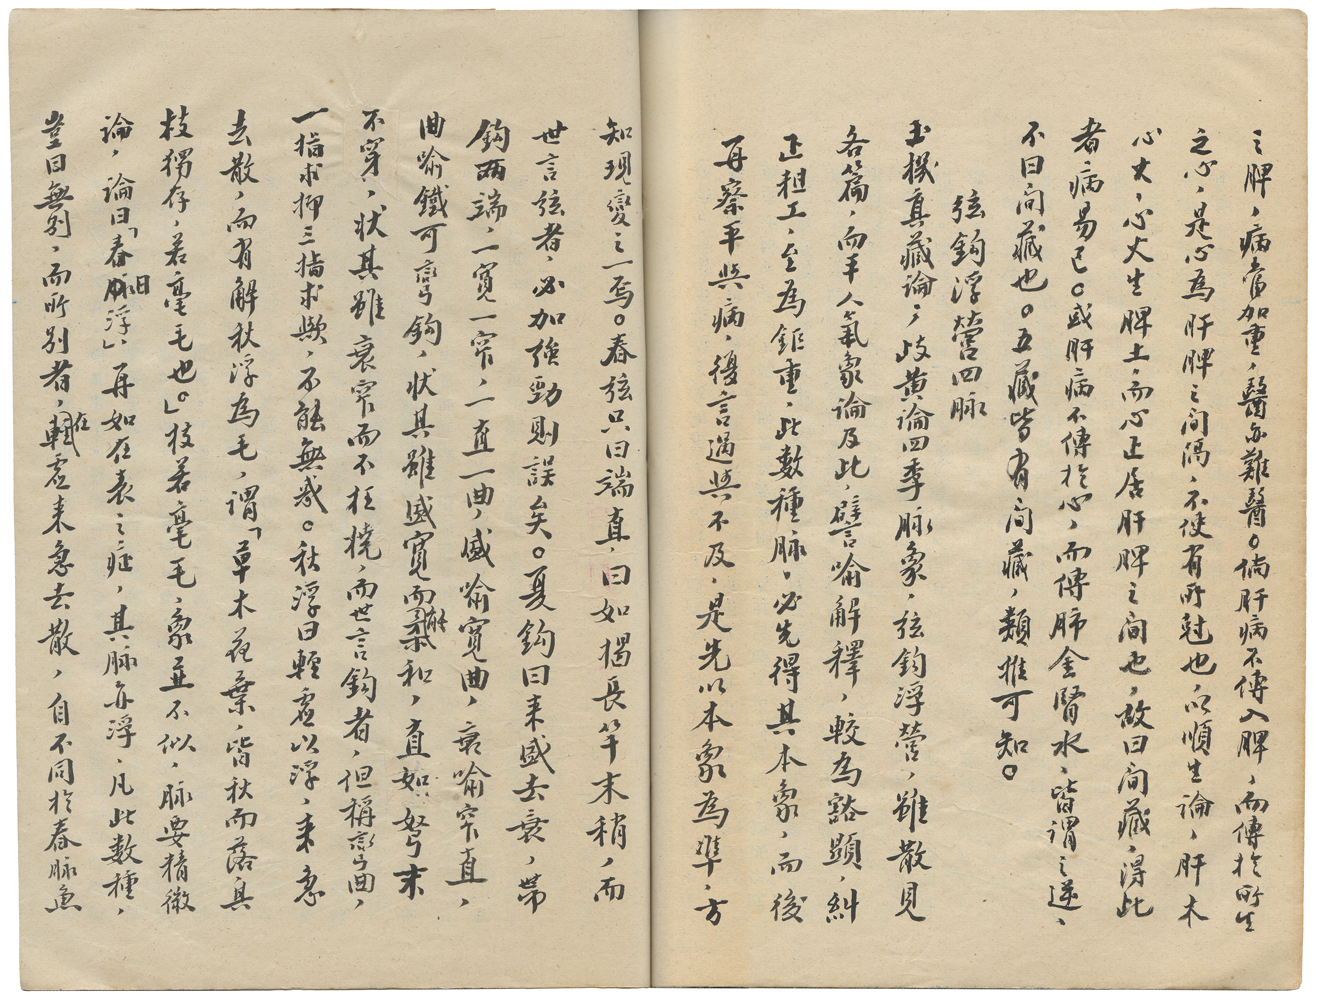 之脾，病當加重，醫亦難醫。倘肝病不傳入脾，而傳於所生
之心，是心為肝脾之间隔，不使有所尅也，以順生論，肝木
心火，心火生脾土，而心正居肝脾之间也，故曰间藏，得此
者病易已。或肝病不傳於心，而傳肺金腎水，皆謂之逆，
不曰间藏也。五藏皆有间藏，類推可知。
弦鈎浮營四脉
玉機真藏論，岐黄論四季脉象，弦鈎浮營，雖散見
各篇，而平人氣象論及此，譬喻解釋，較為豁顯，糾
正粗工，至為鉅重，此數種脉，必先得其本象，而後
再察平與病，復言過與不及，是先以本象為準，方
知現變之一焉。春弦只曰端直，曰如揭長竿末稍，而
世言弦者，必加強勁則誤矣。夏鈎曰来盛去衰，帶
鈎兩端，一寬一窄，一直一曲，盛喻寬曲，衰喻窄直，
曲喻鐵可彎鈎，状其雖盛寬而柔和，直如弩末
不穿，状其雖衰窄而不枉橈，而世言鈎者，但稱彎曲，
一指求抑三指求歟，不能無惑。秋浮曰輕虚以浮，来急
去散，而有解秋浮為毛，謂「草木花葉，皆秋而落，其
枝獨存，若毫毛也。」枝若毫毛，象並不似，脉要精微
論，論曰「春日浮」，再如在表之症，其脉亦浮，凡此數種，
豈曰無别，而所别者，在輕虚来急去散，自不同於春脉魚